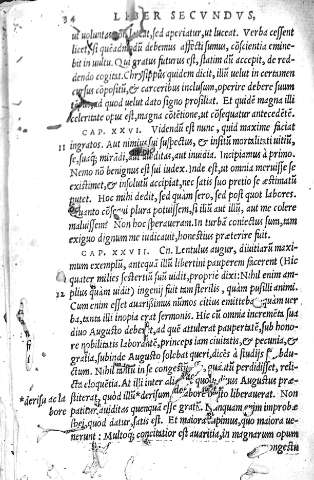 34 LIBER SECVNDVS,
ut uoluntas non lateat, sed aperiatur, ut luceat. Verba cessent
licet, si quēadmodū debemus affecti sumus, cōsciētia emine-
bit in uultu. Qui gratus futurus est, statim dū accepit, de red-
dendo cogitat. Chrysippus quidem dicit, illū uelut in certamen
cursus cōpositū, & carceribus inclusum, operire debere suum
tēpus, ad quod uelut dato signo prosiliat. Et quidē magna illi
celeritate opus est, magna cōtētione, ut cōsequatur antecedētē.
CAP. XXVI. Videndū est nunc, quid maxime faciat
11 ingratos. Aut nimius sui suspectus, & insitū mortalitati uitiū,
se, suaq; mirādi, aut auiditas, aut inuidia. Incipiamus à primo.
Nemo nō benignus est sui iudex. Inde est, ut omnia meruisse se
existimet, & in solutū accipiat, nec satis suo pretio se æstimatū
putet. Hoc mihi dedit, sed quàm sero, sed post quot labores.
Quanto cōsequi plura potuissem, si illū aut illū, aut me colere
maluissem? Non hoc speraueram. In turbā coniectus sum, tam
exiguo dignum me iudicauit, honestius præterire fuit.
CAP. XXVII. Cn. Lentulus augur, diuitiarū maxi-
mum exemplū, antequā illū libertini pauperem facerent (Hic
quater milies sestertiū suū uidit, proprie dixi: Nihil enim am-
plius quàm uidit) ingenij fuit tam sterilis, quàm pusilli animi.
12 Cum enim esset auarissimus nūmos citius emittebat quàm uer
ba, tanta illi inopia erat sermonis. Hic cū omnia incremēta sua
diuo Augusto deberet, ad quē attulerat paupertatē, sub hono-
re nobilitatis laborantē, princeps iam ciuitatis, & pecunia, &
gratia, subinde Augusto solebat queri, dicēs à studijs se abdu-
ctum. Nihil tantū in se congestū, quā perdidisset, reli-
cta eloquentia. At illi inter alia quoq; diuus Augustus præ-
*derisu ac la stiterat, quòd illū *derisum, labore irrito liberauerat. Non
bore patitur auiditas quenquā esse gratū. Nunquam enim improbæ
spei, quod datur, satis est. Et maiora cupimus, quo maiora ue-
nerunt: Multoq; concitatior est auaritia, in magnarum opum
congestu